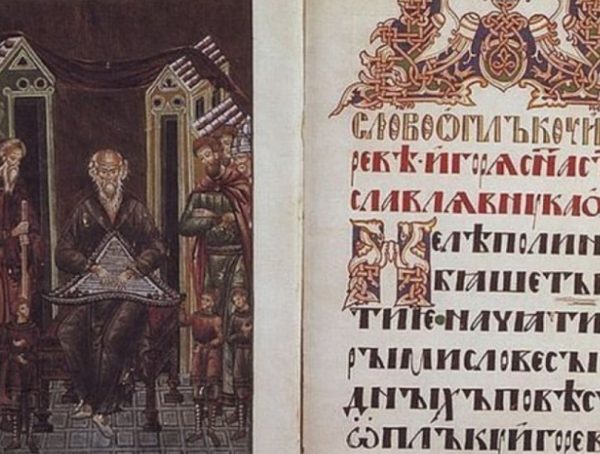 СЛОВОѠПЛЪКОУИ
РЕВѢ·ИГОРѦСН҃АСТ
СЛАВЛѦВНУКАО
НЕЛѢПОЛИН
БІАШЕТЬ
ТИѤ·НАЧАТИ
РЫМИСЛОВЕСЫ
ДНЫХЪПОВѢС
ѠПЛЪКУИГОРЕВ